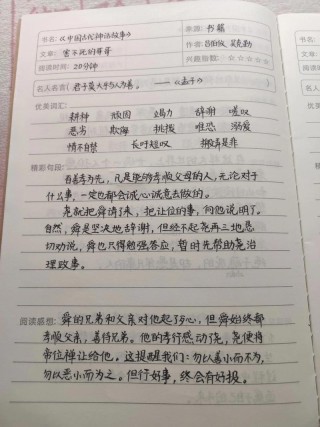 书名:《中国古代神话故事》 来源:书籍
文章:害不死的哥哥 作者:吕伯攸 吴克勤
阅读时间:20分钟 兴趣指数:☆☆☆☆☆
名人名言(君子莫大乎与人为善。 ——《孟子》)
优美词汇:
耕种 顽固 竭力 辞谢 嗟叹
恶劣 欺侮 挑拨 唯恐 溺爱
情不自禁 长吁短叹 搬弄是非
精彩句段:
百善孝为先,凡是能够孝顺父母的人,无论对于
什么事,一定也都会诚心诚意去做的。
尧就把舜请了来,把让位的事,向他说明了。
自然,舜是坚决地辞谢,但经不起尧再三地恳
切劝说,舜也只得勉强答应,暂时先帮助尧治
理政事。
阅读感想:舜的兄弟和父亲对他起了歹心,但舜始终都
孝顺父亲,善待兄弟。他的孝行感动了尧,尧便将
帝位禅让给他。这提醒我们:勿以善小而不为,
勿以恶小而为之。但行好事,终会有好报。